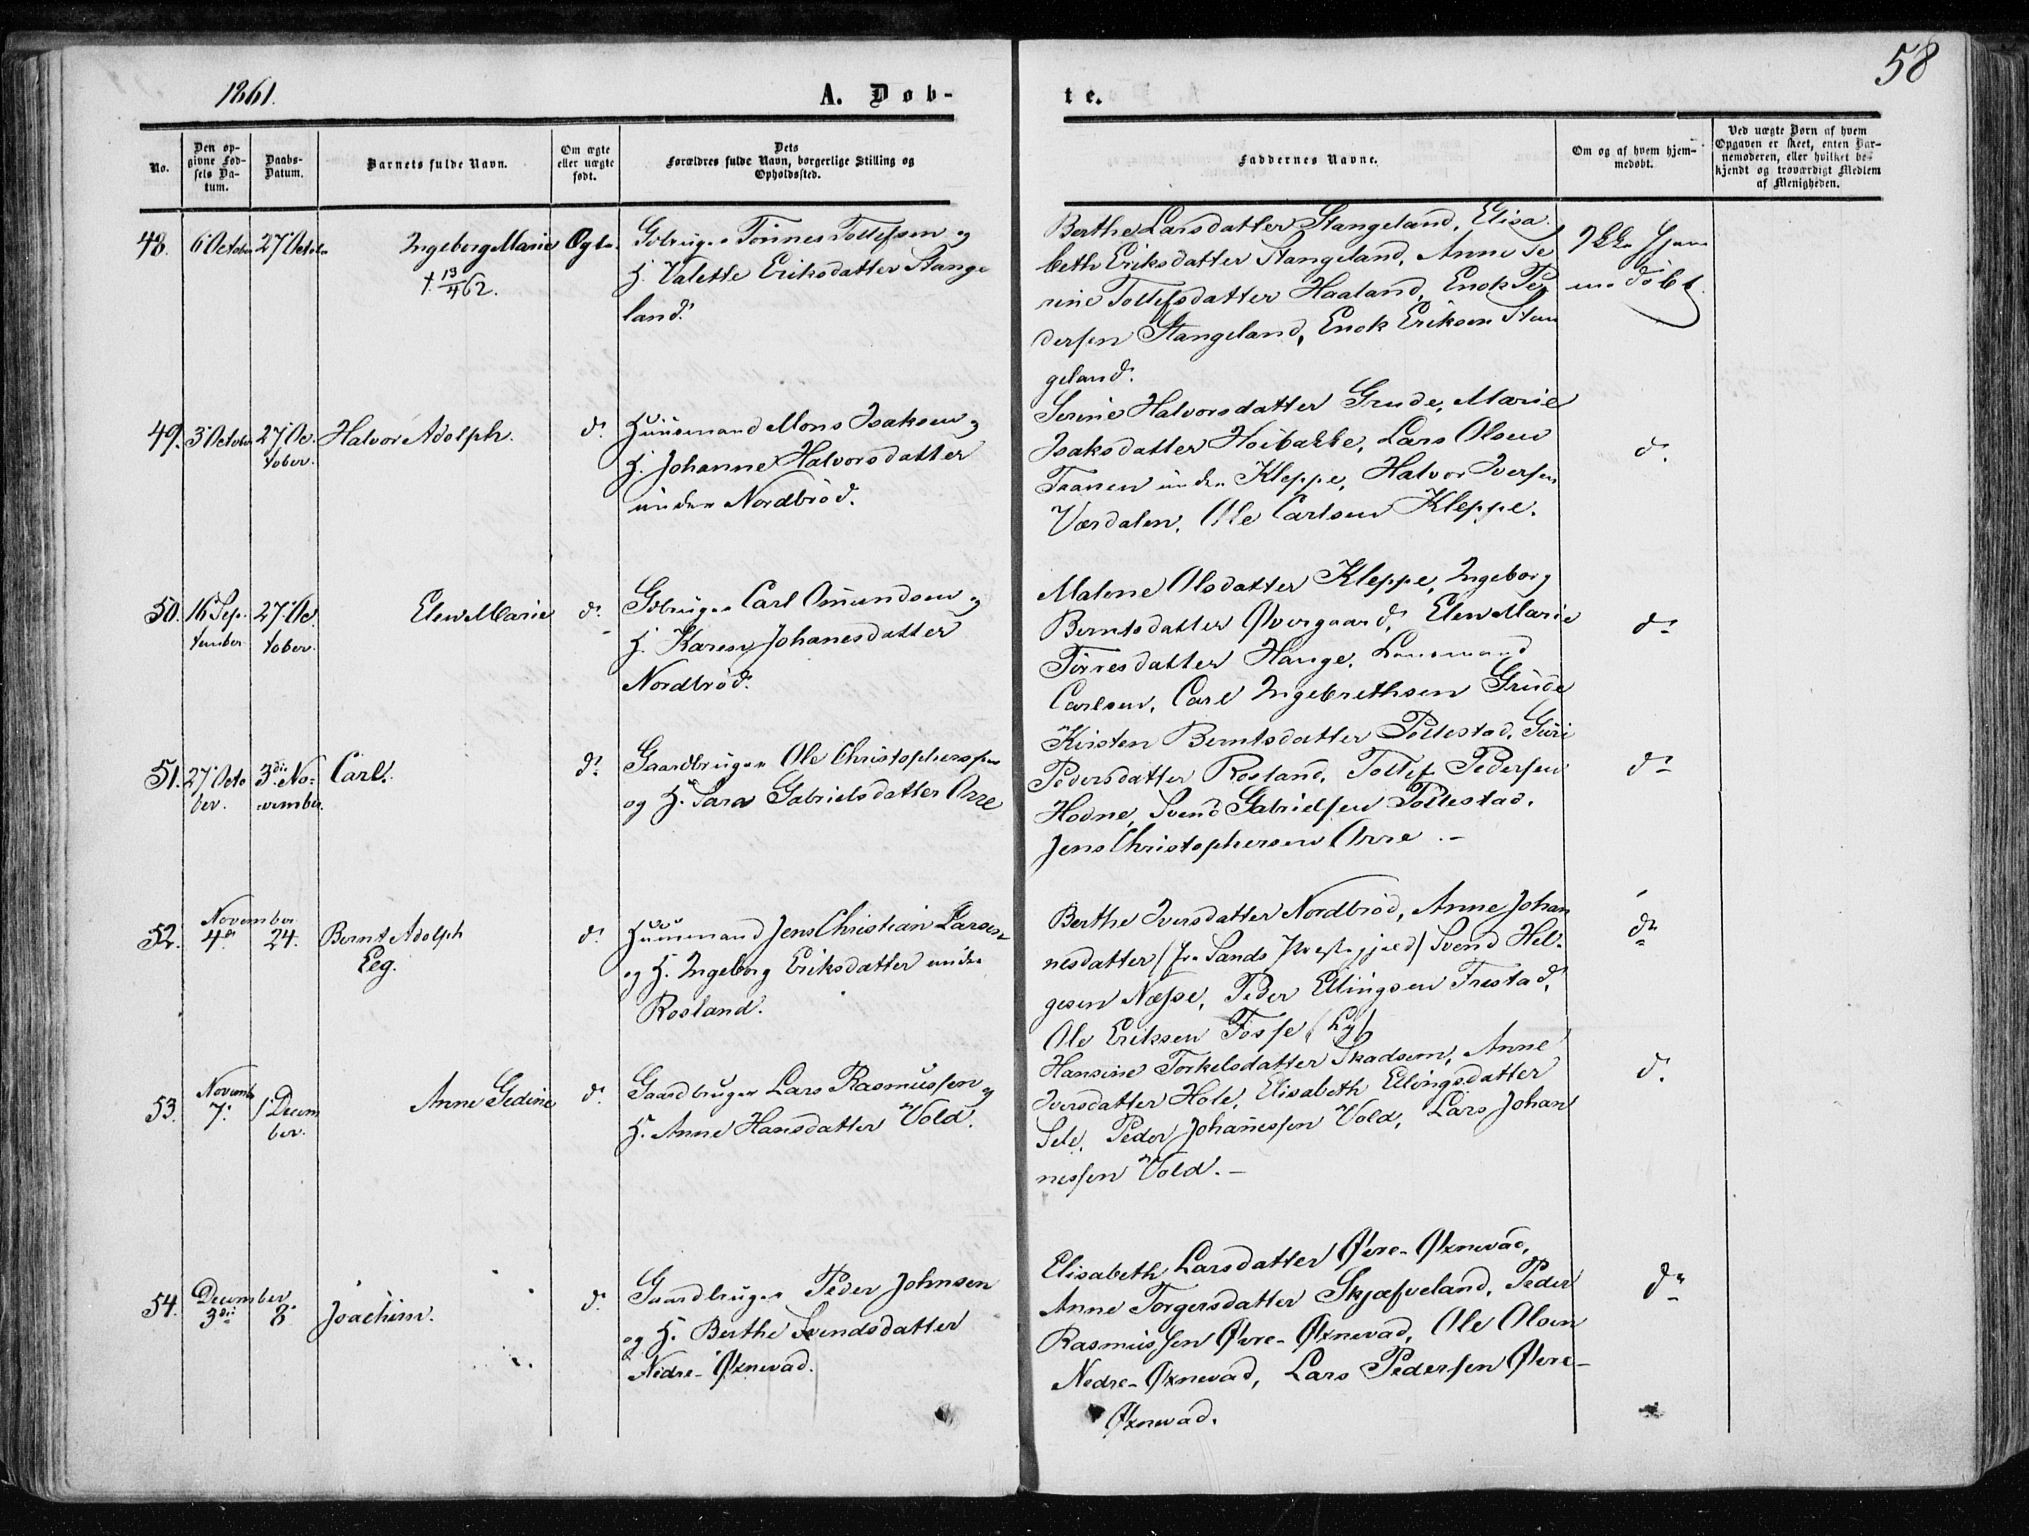 1861.
A. Døb-
te.
58
No.
Den op-
givne Fød-
sels Da-
tum.
Daabs-
Datum.
Barnets fulde Navn.
Om ægte
eller uægte
født.
Dets
Forældres fulde Navn, borgerlige Stilling og
Opholdssted.
Faddernes Navne.
Om og af hvem hjem-
medøbt.
Ved uægte Børn af hvem
Opgaven er skeet, enten Bar-
nemoderen, eller hvilket be-
kjendt og troværdigt Medlem
af Menigheden.
48. 6 October 27 October Ingeborg Marie Ægte. Gbruger Tönnes Tollefsen og
† 13/4 62. H. Valette Eriksdatter Stange
land.
Berthe Larsdatter Stangeland, Elisa
beth Eriksdatter Stangeland, Anne Se
rine Tollefsdatter Haaland, Enok Pe
dersen Stangeland, Enok Eriksen Stan
geland.
Ikke hjem
me døbt.
49. 3 October 27 Oc
tober. Halvor Adolph. do. Huusmand Mons Isaksen og
H. Johanne Halvorsdatter
under Nordbrød.
Serine Halvorsdatter Grude, Marie
Isaksdatter Høibakke, Lars Olsen
Taanen under Kleppe, Halvor Iversen
Værdalen, Ole Carlsen Kleppe.
do.
50. 16 Sep-
tember 27 Oc
tober. Elen Marie do. Gbruger Carl Omundsen og
H. Karen Johanesdatter
Nordbrød.
Malene Olsdatter Kleppe, Ingeborg
Berntsdatter Øvergaard, Elen Marie
Törresdatter Hauge, Lensmand
Carlsen, Carl Ingebrethsen Grude
do.
51. 27 Octo
ber. 3die No-
vember. Carl. do. Gaardbruger Ole Christophersen
og H. Sara Gabrielsdatter Orre
Kirsten Berntsdatter Pollestad, Guri
Pedersdatter Rosland, Tollef Pedersen
Hodne, Svend Gabrielsen Pollestad,
Jens Christophersen Orre. –
do.
52. November
4de 24. Bernt Adolph
Eeg. do. Huusmand Jens Christian Larsen
og H. Ingeborg Eriksdatter under
Rosland.
Berthe Iversdatter Nordbrød, Anne Johan
nesdatter (fra Sands Præstegjeld) Svend Hel-
gesen Næsse, Peder Ellingsen Frestad,
Ole Eriksen Fosse (Ly)
do.
53. Novembr
7. 1 Decem
ber. Anne Gedine do. Gaardbruger Lars Rasmussen og
H. Anne Hansdatter Vold.
Hansine Torkelsdatter Skadsem, Anne
Iversdatter Hole, Elisabeth Ellingsdatter
Sele, Peder Johanessen Vold, Lars Johan
nessen Vold. –
do.
54. December
3die 8. Joachim. do. Gaardbruger Peder Johnsen
og H. Berthe Svendsdatter
Nedre-Øxnevad.
Elisabeth Larsdatter Øvre-Øxnevad,
Anne Torgersdatter Skjæfveland, Peder
Rasmussen Øvre-Øxnevad, Ole Olsen
Nedre-Øxnevad, Lars Pedersen Øvre-
Øxnevad.
do.